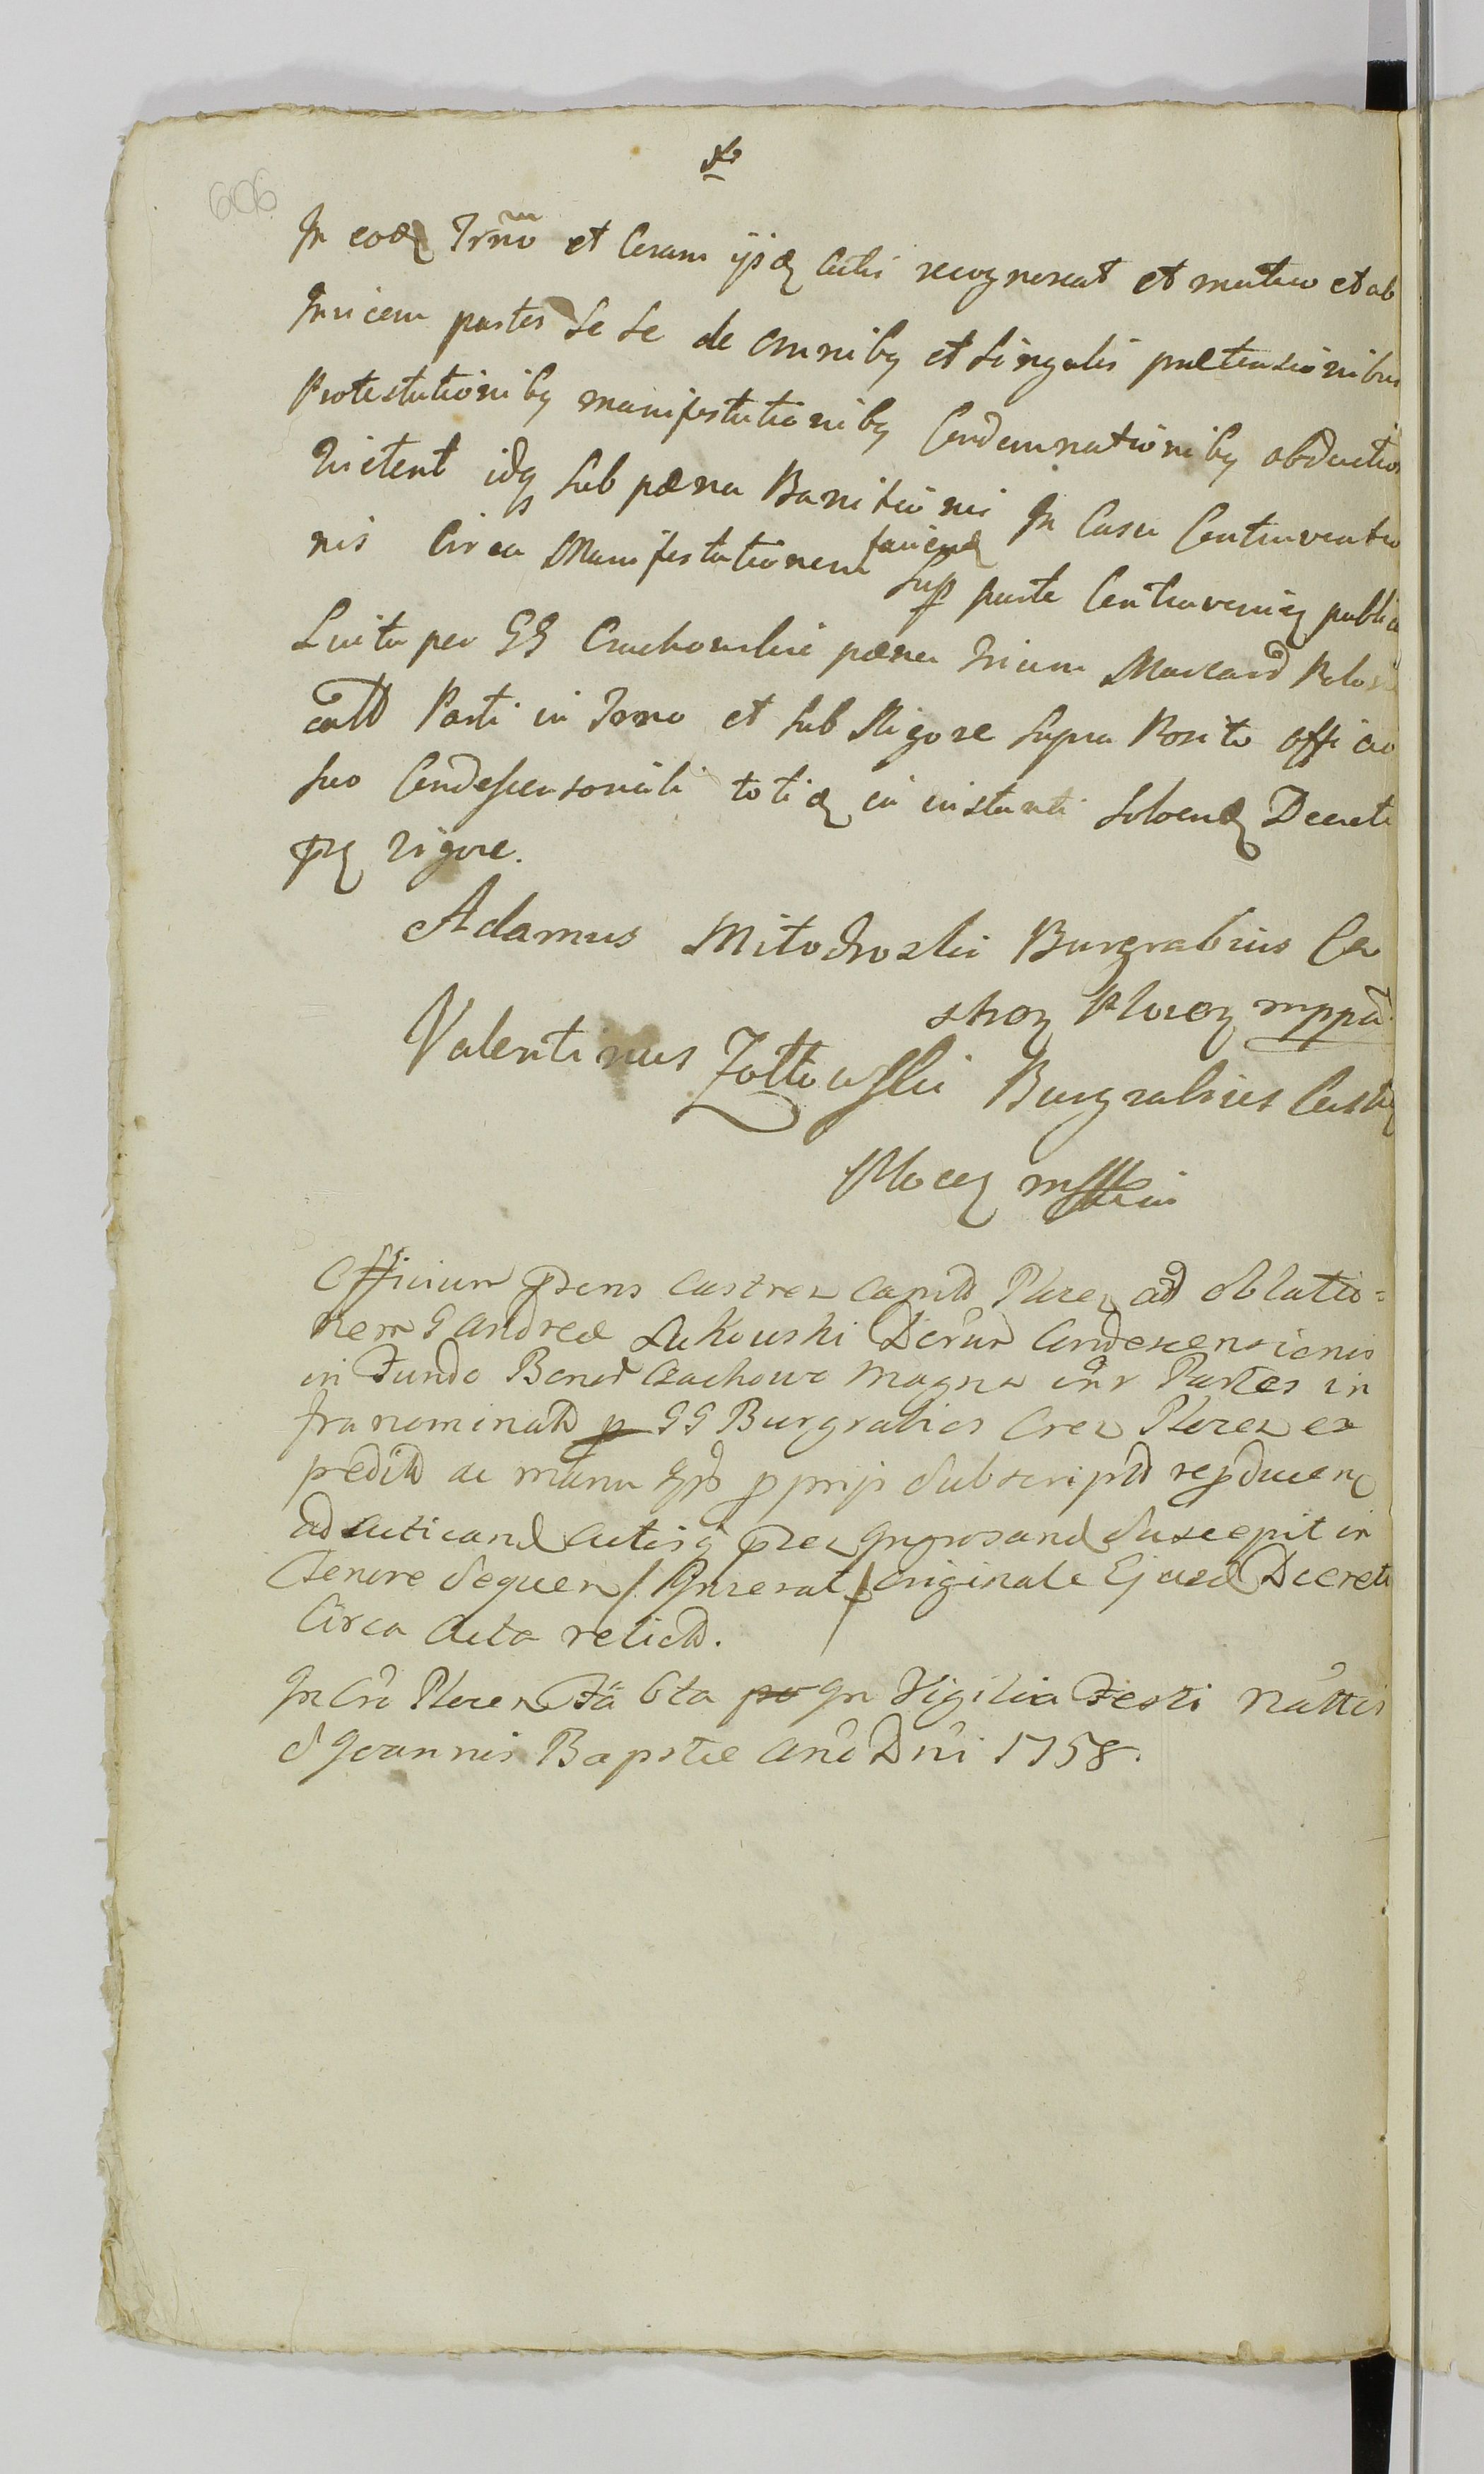 606
In eodq Trmno et Coram ijsdq Actis recognoscat et mutuo et ab
Invicem partes Se Se de omnibq et Singulis praetensionibus
Protestationibq manifestationibq Condemnationibq obductis
Quietent idqq Sub paena Banitionis In Casu Contraventio
nis Circa Manifestationem faciendq Sup parte Contravenienq publica
Luita per GG Czachowskie paena trium Marcarum
alteri Parti in Trmno et Sub Rigore Supra Posito officio
suo Condescensoriali totiq in instanti Solvendq Decreti
pntq vigore.
Adamus Mitodroski Burgrabius Ca
streq Plocq mppa
Valentinus Zołtowski Burgrabius Castrq
Plocq
Officium Prens Castren Capit Plocen ad oblatio=
nem G Andreae Łukowski Decrum Condescensionis
in Fundo Bonor Czachowo Magna intr Partes in
fra nominat p GG Burgrabios Cren Plocen ex
pedit ac manu pprijs Subscript reproducen
ad acticand Actisq Pren Ingrosand Suscepit in
tenore Sequen /. Inserat / originale Ejusd Decreti
Circa Acta relict.
In Cro Plocen Fa 6ta In Vigilia Festi Nattis
S Joannis Baptstae Ano Dni 1758.